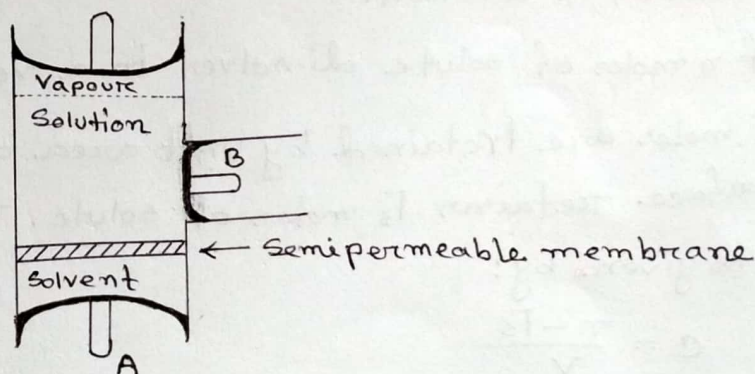 Vapour
Solution
B
Semipermeable membrane
Solvent
A